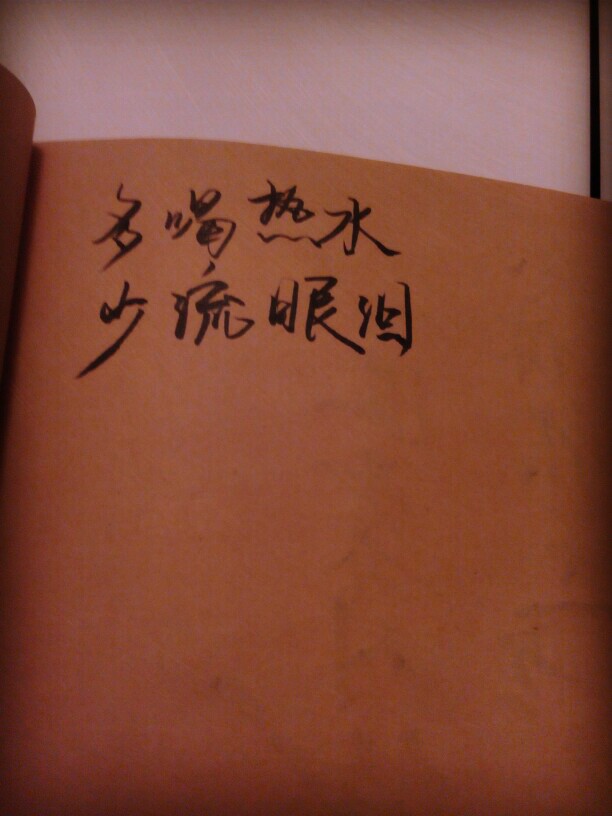 多喝热水
少流眼泪